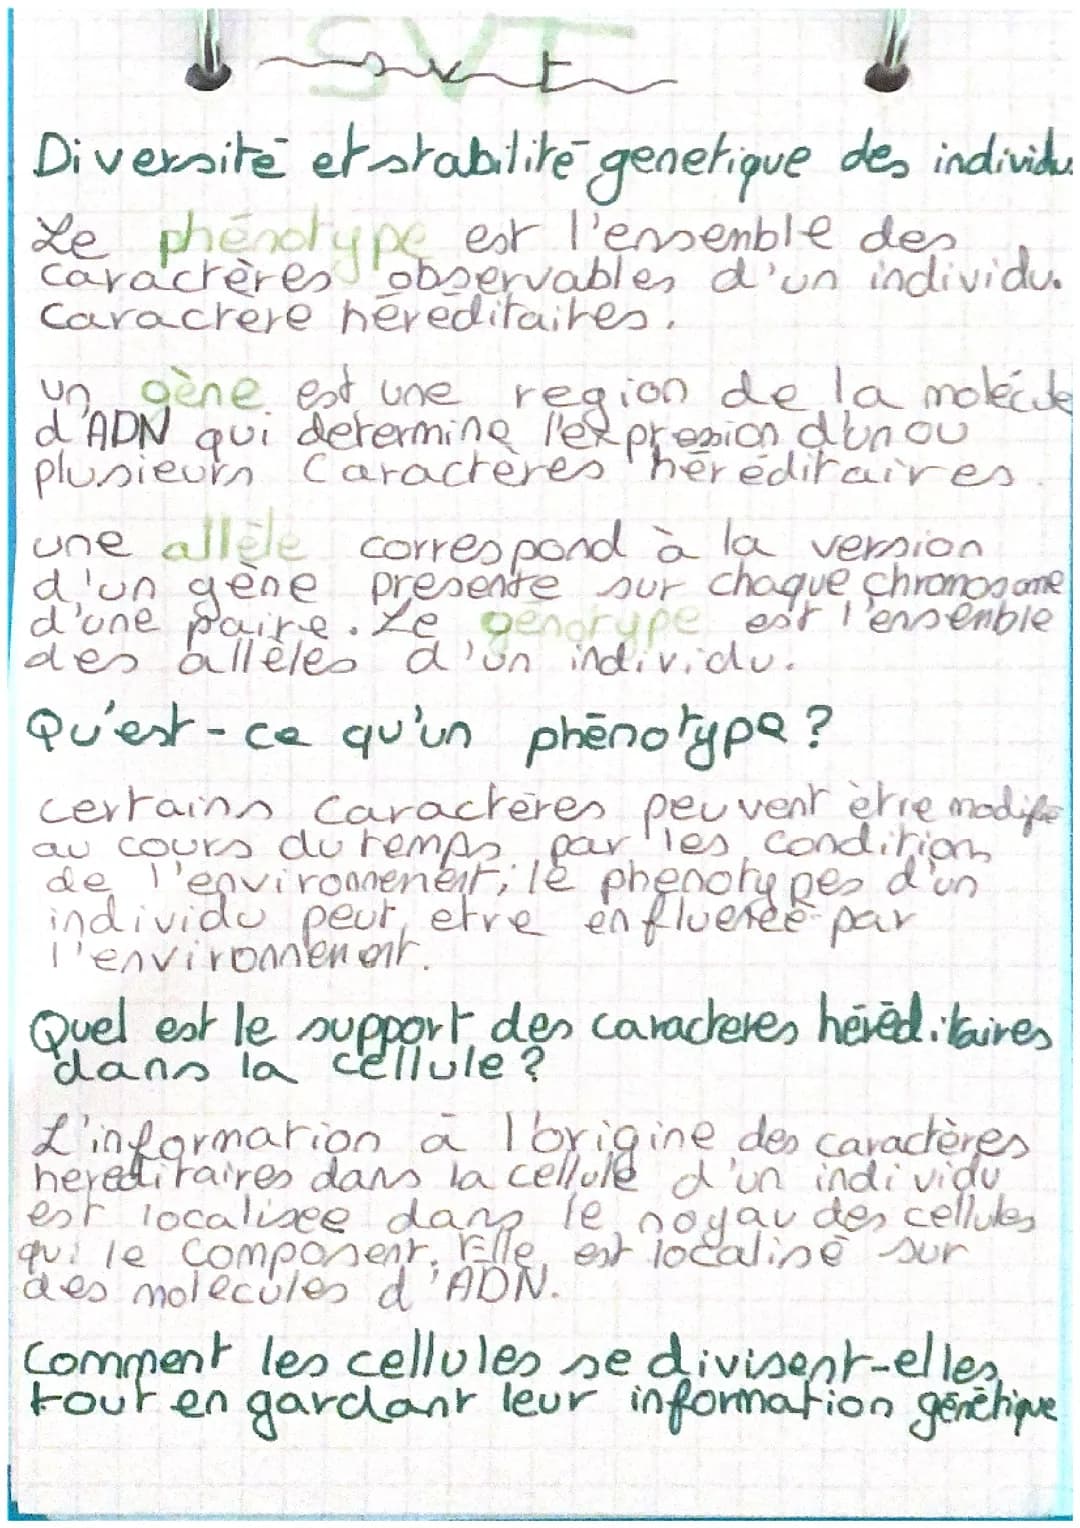 SVT
svt
Diversité et stabilité genetique des individu
Le phénotype est l'ensemble des
caractères observables d'un individu.
Caractere héréditaires.
un gène est une region de la molécule
d'ADN qui determine l'expression d'un ou
plusieurs caractères héréditaires.
une allèle correspond à la version
d'un gène presente sur chaque chromosome
d'une paire. Le génotype est l'ensemble
des allèles d'un individu.
Qu'est-ce qu'un phénotype ?
certains caractères peuvent être modifé
au cours du temps par les condition
de l'environnement; le phenotypes d'un
individu peut, etre enfluencée par
l'environnement.
Quel est le support des caracteres héréditaires
dans la cellule ?
L'information à l'origine des caractères
hereditaires dans la cellule d'un individu
est localisee dans le noyau des cellules
qui le composent. Elle est localisé sur
des molecules d'ADN.
Comment les cellules se divisent-elles
tout en gardant leur information génétique